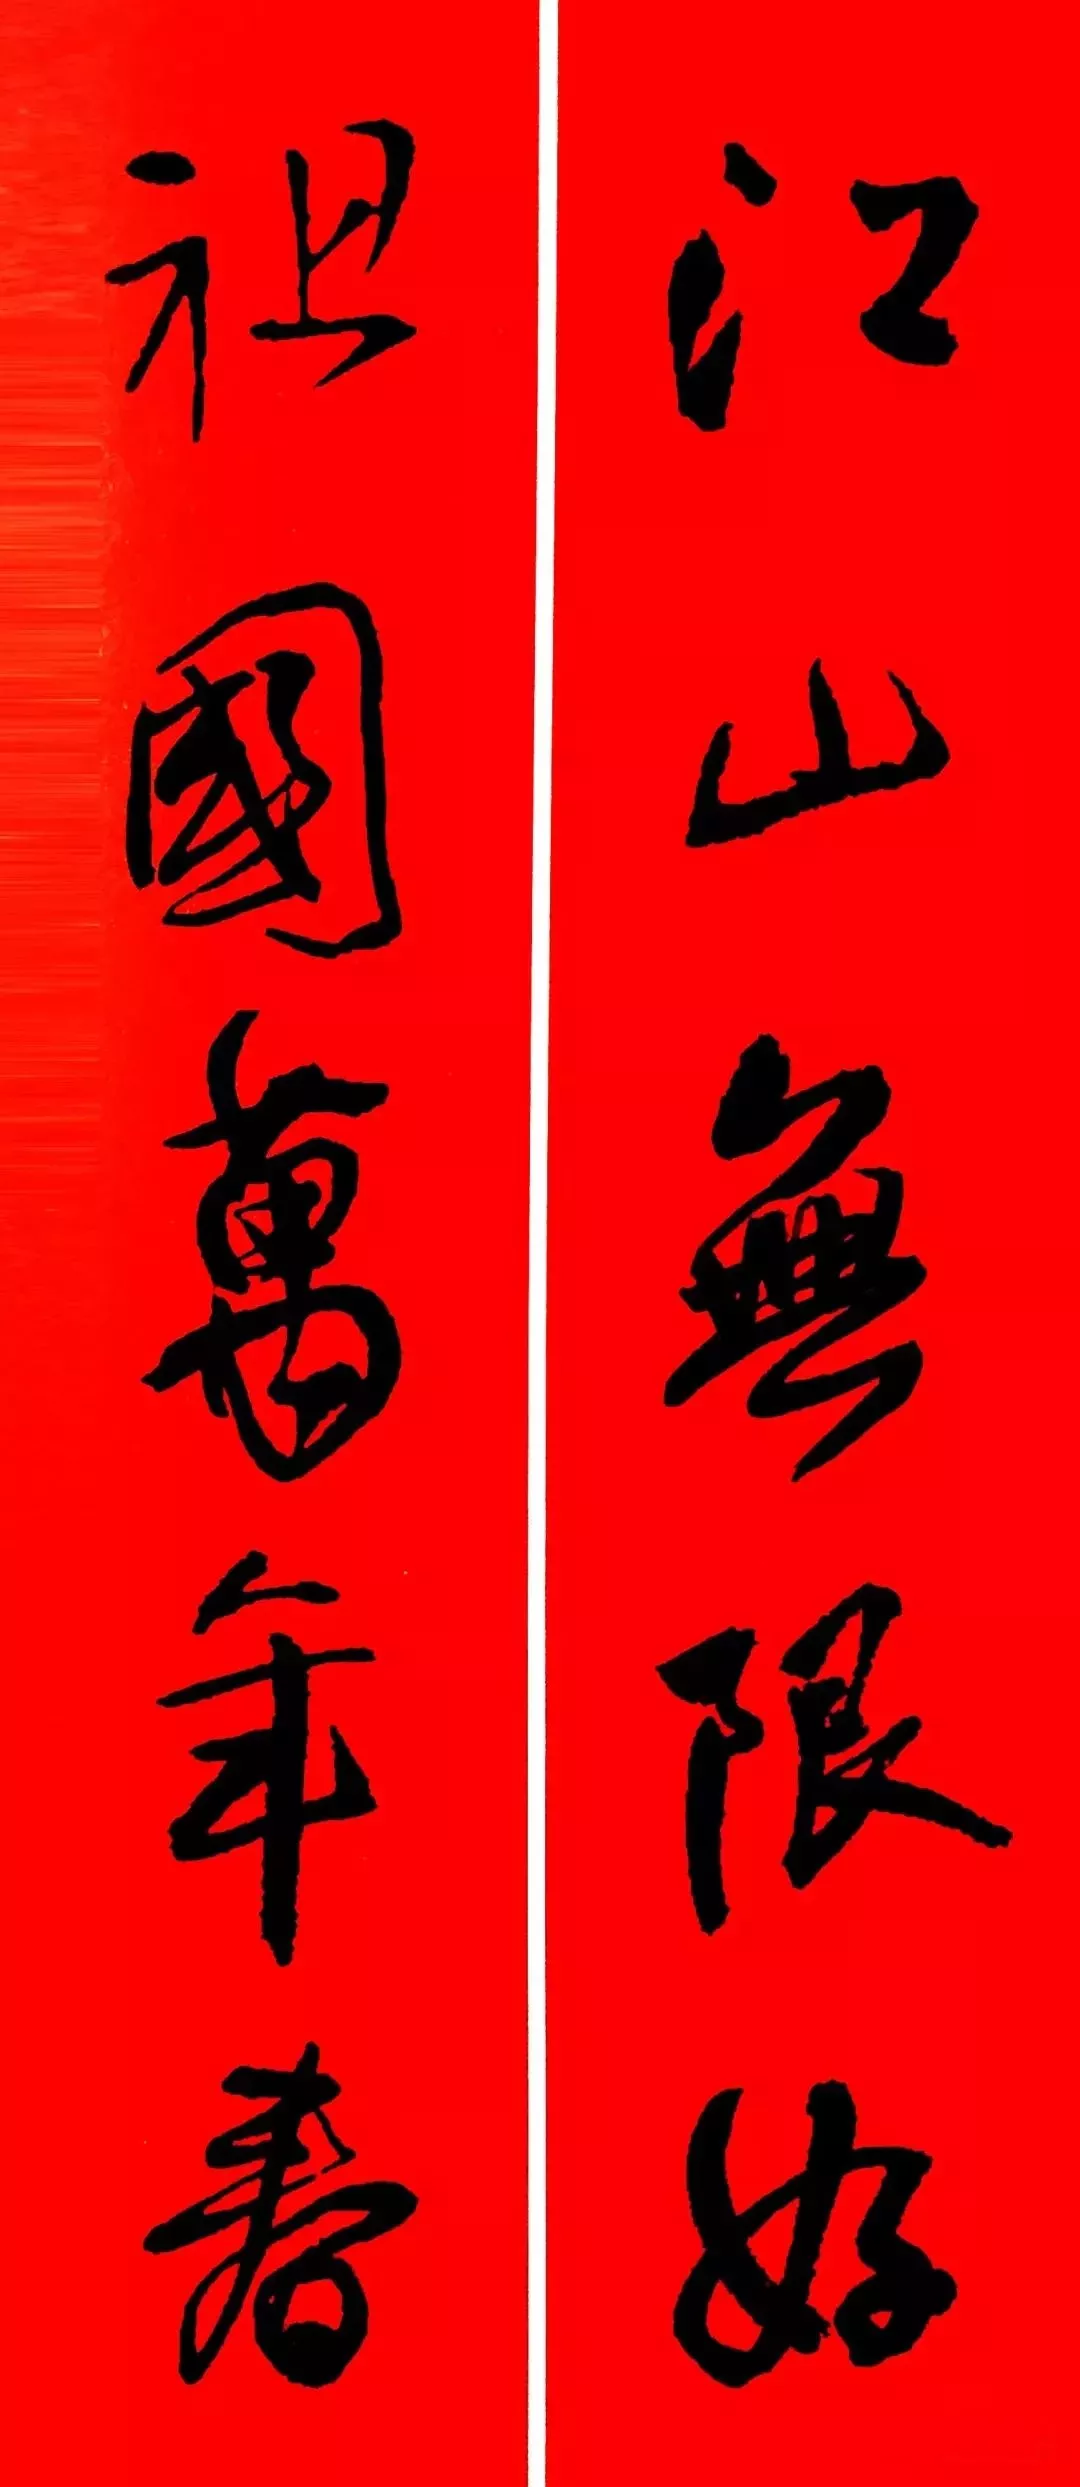 江山無限好
祖國萬年春